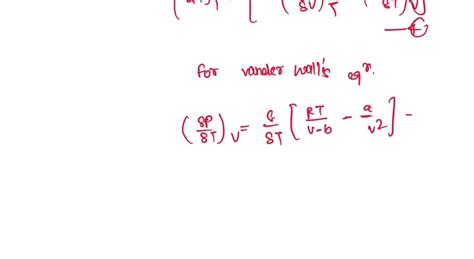 (δV)T (δT)V
for vander wall's eqⁿ.
(δP/δT)V = δ/δT [RT/v-b - a/v2] -